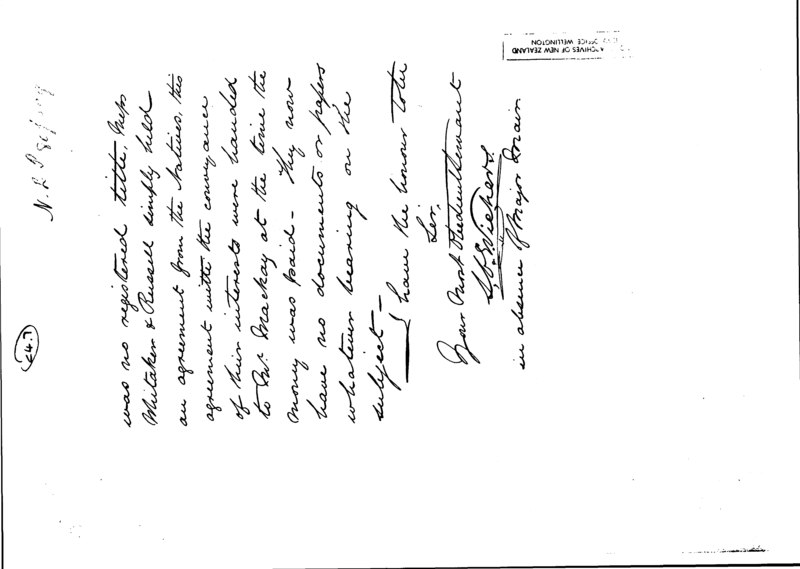 was no registered title, Messs
Whitaker & Russell simply held
an agreement from the Natives, this
agreement with the conveyance
of their interests were handed
to Mr. Mackay at the time the
money was paid — They now
have no documents or papers
whatever bearing on the
subject —
I have the honour to be
Sir,
Your Most Obedient Servant
in absence of Major Brain
ARCHIVES OF NEW ZEALAND
OFFICE WELLINGTON